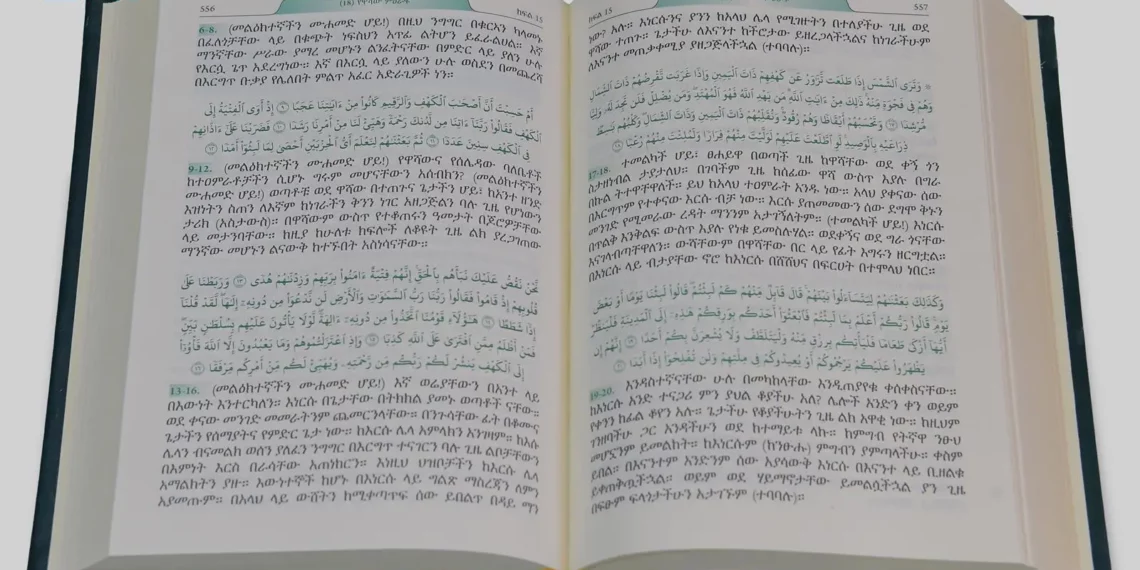 556
ክፍል 15
6-8. (መልዕክተኛችን ሙሐመድ ሆይ!) በዚህ ንግግር በቁርአን ካላመኑ
በፈለጎቻቸው ላይ በቁጭት ነፍስህን አጥፊ ልትሆን ይፈራልህል። እኛ
ማንኛቸው ሥራው ያማረ መሆኑን ልንፈትናቸው በምድር ላይ ያለን ሁሉ
ለእርሷ ጌጥ አደረግነው። እኛ በእርሷ ላይ ያለውን ሁሉ ወስደን በመጨረሻ
በእርግጥ ቡቃያ የሌለበት ምልጥ አፈር አድራጊዎች ነን።
أَمْ حَسِبْتَ أَنَّ أَصْحَٰبَ ٱلْكَهْفِ وَٱلرَّقِيمِ كَانُوا۟ مِنْ ءَايَٰتِنَا عَجَبًا ٩ إِذْ أَوَى ٱلْفِتْيَةُ إِلَى
ٱلْكَهْفِ فَقَالُوا۟ رَبَّنَآ ءَاتِنَا مِن لَّدُنكَ رَحْمَةً وَهَيِّئْ لَنَا مِنْ أَمْرِنَا رَشَدًا ١٠ فَضَرَبْنَا عَلَىٰٓ ءَاذَانِهِمْ
فِى ٱلْكَهْفِ سِنِينَ عَدَدًا ١١ ثُمَّ بَعَثْنَٰهُمْ لِنَعْلَمَ أَىُّ ٱلْحِزْبَيْنِ أَحْصَىٰ لِمَا لَبِثُوٓا۟ أَمَدًا ١٢
9-12. (መልዕክተኛችን ሙሐመድ ሆይ!) የዋሻውና የሰሌዳው ባለቤቶች
ከተዐምራቶቻችን ሲሆኑ ግሩም መሆናቸውን አሰብክን? (መልዕክተኛችን
ሙሐመድ ሆይ!) ወጣቶቹ ወደ ዋሻው በተጠጉና ጌታችን ሆይ፤ ከአንተ ዘንድ
እዝነትን ስጠን ለእኛም ከነገራችን ቅንን ነገር አዘጋጅልን ባሉ ጊዜ የሆነውን
ታሪክ (አስታውስ)። በዋሻውም ውስጥ የተቆጠሩን ዓመታት በጆሮዎቻቸው
ላይ መታንባቸው። ከዚያ ከሁለቱ ክፍሎች ለቆዩት ጊዜ ልክ ያረጋገጠው
ማንኛው መሆኑን ልናውቅ ከተኙበት አስነሳናቸው።
نَّحْنُ نَقُصُّ عَلَيْكَ نَبَأَهُم بِٱلْحَقِّ إِنَّهُمْ فِتْيَةٌ ءَامَنُوا۟ بِرَبِّهِمْ وَزِدْنَٰهُمْ هُدًى ١٣ وَرَبَطْنَا عَلَىٰ
قُلُوبِهِمْ إِذْ قَامُوا۟ فَقَالُوا۟ رَبُّنَا رَبُّ ٱلسَّمَٰوَٰتِ وَٱلْأَرْضِ لَن نَّدْعُوَا۟ مِن دُونِهِۦٓ إِلَٰهًا لَّقَدْ قُلْنَآ
إِذًا شَطَطًا ١٤ هَٰٓؤُلَآءِ قَوْمُنَا ٱتَّخَذُوا۟ مِن دُونِهِۦٓ ءَالِهَةً لَّوْلَا يَأْتُونَ عَلَيْهِم بِسُلْطَٰنٍۭ بَيِّنٍ
فَمَنْ أَظْلَمُ مِمَّنِ ٱفْتَرَىٰ عَلَى ٱللَّهِ كَذِبًا ١٥ وَإِذِ ٱعْتَزَلْتُمُوهُمْ وَمَا يَعْبُدُونَ إِلَّا ٱللَّهَ فَأْوُۥٓا۟
إِلَى ٱلْكَهْفِ يَنشُرْ لَكُمْ رَبُّكُم مِّن رَّحْمَتِهِۦ وَيُهَيِّئْ لَكُم مِّنْ أَمْرِكُم مِّرْفَقًا ١٦
13-16. (መልዕክተኛችን ሙሐመድ ሆይ!) እኛ ወሬያቸውን በአንተ ላይ
በእውነት እንተርካለን። እነርሱ በጌታቸው በትክክል ያመኑ ወጣቶች ናቸው።
ወደ ቀናው መንገድ መመራትንም ጨመርንላቸው። በንጉሳቸው ፊት በቆሙና
ጌታችን የሰማያትና የምድር ጌታ ነው። ከእርሱ ሌላ አምላክን አንገዛም። ከእሱ
ሌላን ብናመልክ ወሰን ያለፈን ንግግር በእርግጥ ተናገርን ባሉ ጊዜ ልቦቻቸውን
በእምነት እርስ በራሳቸው አጠነከርን። እነዚህ ህዝቦቻችን ከእርሱ ሌላ
አማልክትን ያዙ። እውነተኞች ከሆኑ በእነርሱ ላይ ግልጽ ማስረጃን ለምን
አያመጡም። በአላህ ላይ ውሸትን ከሚቀጣጥፍ ሰው ይበልጥ በዳይ ማን
ክፍል 15
557
ነው? አሉ። እነርሱንና ያንን ከአላህ ሌላ የሚገዙትን በተለያችሁ ጊዜ ወደ
ዋሻው ተጠጉ። ጌታችሁ ለእናንተ ከችሮታው ይዘረጋላችኋልና ከነገራችሁም
ለእናንተ መጠቃቀሚያ ያዘጋጅላችኋል (ተባባሉ)።
۞ وَتَرَى ٱلشَّمْسَ إِذَا طَلَعَت تَّزَٰوَرُ عَن كَهْفِهِمْ ذَاتَ ٱلْيَمِينِ وَإِذَا غَرَبَت تَّقْرِضُهُمْ ذَاتَ ٱلشِّمَالِ
وَهُمْ فِى فَجْوَةٍ مِّنْهُ ذَٰلِكَ مِنْ ءَايَٰتِ ٱللَّهِ مَن يَهْدِ ٱللَّهُ فَهُوَ ٱلْمُهْتَدِ وَمَن يُضْلِلْ فَلَن تَجِدَ لَهُۥ وَلِيًّا
مُّرْشِدًا ١٧ وَتَحْسَبُهُمْ أَيْقَاظًا وَهُمْ رُقُودٌ وَنُقَلِّبُهُمْ ذَاتَ ٱلْيَمِينِ وَذَاتَ ٱلشِّمَالِ وَكَلْبُهُم بَٰسِطٌ
ذِرَاعَيْهِ بِٱلْوَصِيدِ لَوِ ٱطَّلَعْتَ عَلَيْهِمْ لَوَلَّيْتَ مِنْهُمْ فِرَارًا وَلَمُلِئْتَ مِنْهُمْ رُعْبًا ١٨
17-18. ተመልካች ሆይ፤ ፀሐይዋ በወጣች ጊዜ ከዋሻቸው ወደ ቀኝ ጎን
ስታዘነብል ታያታለህ። በገባችም ጊዜ ከሰፊው ዋሻ ውስጥ እያሉ በግራ
በኩል ትተዋቸዋለች። ይህ ከአላህ ተዐምራት አንዱ ነው። አላህ ያቀናው ሰው
በእርግጥም የተቀናው እርሱ ብቻ ነው። እርሱ ያጠመመውን ሰው ደግሞ ቅኑን
መንገድ የሚመራው ረዳት ማንንም አታገኝለትም። (ተመልካች ሆይ!) እነርሱ
በጥልቅ እንቅልፍ ውስጥ እያሉ የነቁ ይመስሉሃል። ወደቀኝና ወደ ግራ ጎናቸው
እናገለባብጣቸዋለን። ውሻቸውም በዋሻቸው በር ላይ የፊት እግሩን ዘርግቷል።
በእነርሱ ላይ ብታያቸው ኖሮ ከእነርሱ በሸሸህና በፍርሀት በተሞላህ ነበር።
وَكَذَٰلِكَ بَعَثْنَٰهُمْ لِيَتَسَآءَلُوا۟ بَيْنَهُمْ قَالَ قَآئِلٌ مِّنْهُمْ كَمْ لَبِثْتُمْ قَالُوا۟ لَبِثْنَا يَوْمًا أَوْ بَعْضَ
يَوْمٍ قَالُوا۟ رَبُّكُمْ أَعْلَمُ بِمَا لَبِثْتُمْ فَٱبْعَثُوٓا۟ أَحَدَكُم بِوَرِقِكُمْ هَٰذِهِۦٓ إِلَى ٱلْمَدِينَةِ فَلْيَنظُرْ
أَيُّهَآ أَزْكَىٰ طَعَامًا فَلْيَأْتِكُم بِرِزْقٍ مِّنْهُ وَلْيَتَلَطَّفْ وَلَا يُشْعِرَنَّ بِكُمْ أَحَدًا ١٩ إِنَّهُمْ إِن
يَظْهَرُوا۟ عَلَيْكُمْ يَرْجُمُوكُمْ أَوْ يُعِيدُوكُمْ فِى مِلَّتِهِمْ وَلَن تُفْلِحُوٓا۟ إِذًا أَبَدًا ٢٠
19-20. እንዳስተኛናቸው ሁሉ በመካከላቸው እንዲጠያየቁ ቀሰቀስናቸው።
ከእነርሱ አንድ ተናጋሪ ምን ያህል ቆያችሁ አለ? ሌሎች አንድን ቀን ወይም
የቀንን ከፊል ቆየን አሉ። ጌታችሁ የቆያችሁትን ጊዜ ልክ አዋቂ ነው። ከዚህም
ገንዘባችሁ ጋር አንዳችሁን ወደ ከተማይቱ ላኩ። ከምግብ የትኛዋ ንፁህ
መሆኗንም ይመልከት። ከእነርሱም (ከንፁሑ) ምግብን ያምጣላችሁ። ቀስም
ይበል። በእናንተም አንድንም ሰው አያሳውቅ እነርሱ በእናንተ ላይ ቢዘልቁ
ይቀጠቅጧችኋል። ወይም ወደ ሃይማኖታቸው ይመልሷችኋል ያን ጊዜ
በፍፁም ፍላጎታችሁን አታገኙም (ተባባሉ)።